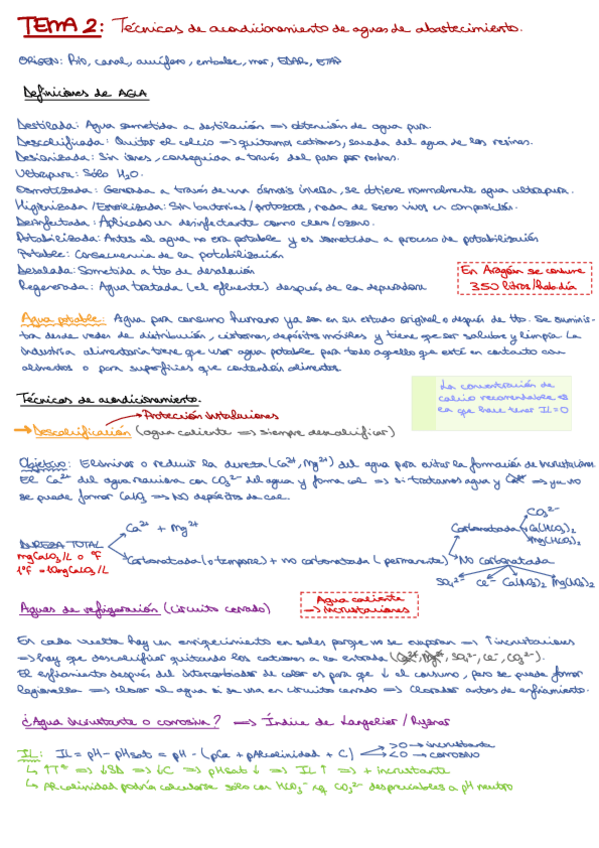 TEMA 2: Técnicas de acondicionamiento de aguas de abastecimiento.
ORIGEN: Río, canal, acuífero, embalse, mar, EDAR, ETAP
Definiciones de AGUA
Destilada: Agua sometida a destilación => obtención de agua pura.
Descalcificada: Quitar el calcio => quitamos cationes, sacada del agua de las resinas.
Desionizada: Sin iones, conseguida a través del paso por resinas.
Ultrapura: Sólo H₂O.
Osmotizada: Generada a través de una ósmosis inversa, se obtiene normalmente agua ultrapura.
Higienizada/Esterilizada: Sin bacterias/protozoos, nada de seres vivos en composición.
Desinfectada: Aplicado un desinfectante como cloro/ozono.
Potabilizada: Antes el agua no era potable y es sometida a proceso de potabilización
Potable: Consecuencia de la potabilización
Desalada: Sometida a tto de desalación
Regenerada: Agua tratada (el efluente) después de la depuradora
En Aragón se consume
350 litros/hab·día
Agua potable: Agua para consumo humano ya sea en su estado original o después de tto. Se suminis-
tra desde redes de distribución, cisternas, depósitos móviles y tiene que ser salubre y limpia. La
industria alimentaria tiene que usar agua potable para todo aquello que esté en contacto con
alimentos o para superficies que contendrán alimentos.
La concentración de
calcio recomendable es
la que hace tener IL=0
Técnicas de acondicionamiento.
→ Protección instalaciones
→ Descalcificación (agua caliente => siempre descalcificar)
Objetivo: Eliminar o reducir la dureza (Ca²⁺, Mg²⁺) del agua para evitar la formación de incrustaciones.
El Ca²⁺ del agua reacciona con CO₃²⁻ del agua y forma cal => si tratamos agua y Ca²⁺ => ya no
se puede formar CaCO₃ => NO depósitos de cal.
DUREZA TOTAL
mgCaCO₃/L o °F
1°F = 10mgCaCO₃/L
Ca²⁺ + Mg²⁺
Carbonatada (o tempore) + no carbonatada (permanente)
Carbonatada
CO₃²⁻
Ca(HCO₃)₂
Mg(HCO₃)₂
NO carbonatada
SO₄²⁻ Cl⁻ Ca(NO₃)₂ Mg(NO₃)₂
Aguas de refrigeración (circuito cerrado)
Agua caliente
→ incrustaciones
En cada vuelta hay un enriquecimiento en sales porque no se evaporan => ↑incrustaciones
=> hay que descalcificar quitando los cationes a la entrada (Ca²⁺, Mg²⁺, SO₄²⁻, Cl⁻, CO₃²⁻).
El enfriamiento después del intercambiador de calor es para que ↓ el consumo, pero se puede formar
legionella => clorar el agua si se usa en circuito cerrado => Clorador antes de enfriamiento.
¿Agua incrustante o corrosiva? => Índice de Langelier/Ryznar
IL: IL = pH - pHsat = pH - (pCa + pAlcalinidad + C)
>0 → incrustante
<0 → corrosivo
↳ ↑Tª => ↓SD => ↓C => pHsat ↓ => IL ↑ => + incrustante
↳ Alcalinidad podría calcularse sólo con HCO₃⁻ xq CO₃²⁻ despreciables a pH neutro